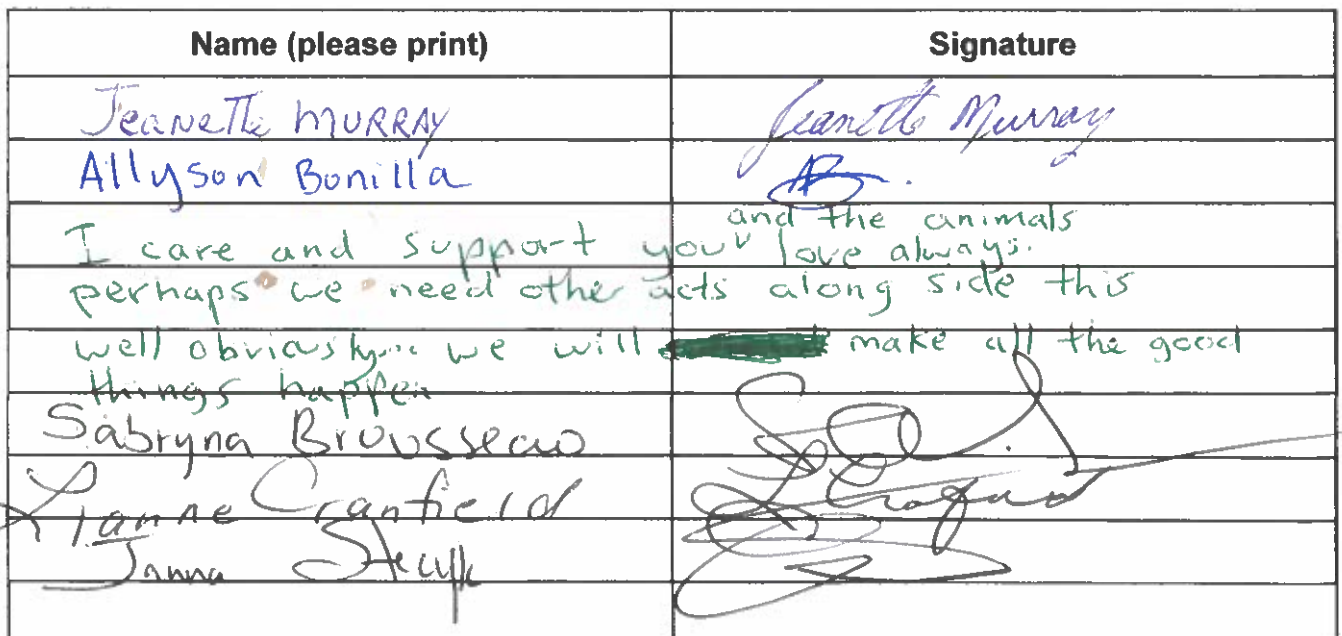 Name (please print) Signature
Jeanette MURRAY Jeanette Murray
Allyson Bonilla AB.
and the animals
I care and support you love always.
perhaps we need other acts along side this
well obviously... we will make all the good
things happen
Sabryna Brousseau
Lianne Cranfield